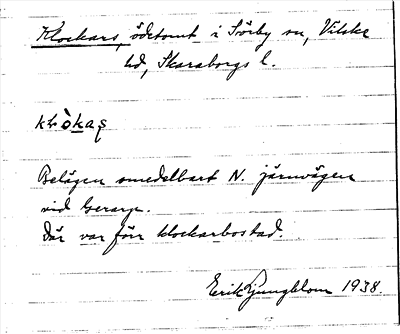 Klockars, ödetomt i Sörby sn, Vilske
hd, Skaraborgs l.
Belägen omedelbart N. järnvägen
vid
Där var förr klockarbostad.
Erik Ljungblom 1938.